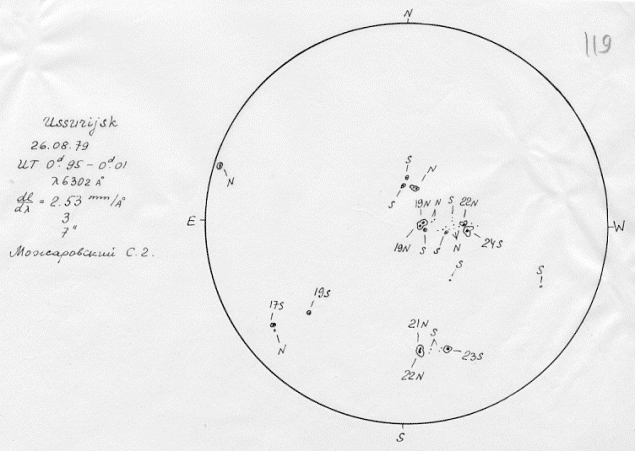 N
119
Ussurijsk
26.08.79
UT 0ᵈ.95 - 0ᵈ.01
λ 6302 Å
dl/dλ = 2.53 mm/Å
3
7"
Можаровский С.Г.
S
N
N
S
19N N S 22N
E
W
19N S S N 24S
S
S
17S 19S
N
21N S
23S
22N
S